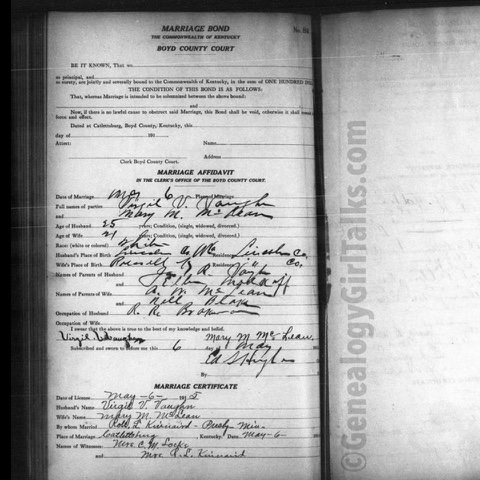 MARRIAGE BOND
THE COMMONWEALTH OF KENTUCKY
No.
BOYD COUNTY COURT
BE IT KNOWN, That we
as principal, and
as surety, are jointly and severally bound to the Commonwealth of Kentucky, in the sum of ONE HUNDRED
THE CONDITION OF THIS BOND IS AS FOLLOWS:
That, whereas Marriage is intended to be solemnized between the above bound:
and
Now, if there is no lawful cause to obstruct said Marriage, this Bond shall be void, otherwise it shall
force and effect.
Dated at Catlettsburg, Boyd County, Kentucky, this
day of 191
Attest: Name
Address
Clerk Boyd County Court.
MARRIAGE AFFIDAVIT
IN THE CLERK'S OFFICE OF THE BOYD COUNTY COURT.
Date of Marriage May 6 Place of Marriage
Full names of parties Virgil V. Vaughn
and Mary M. McLean
Age of Husband 25 years; Condition, (single, widowed, divorced.)
Age of Wife 21 years; Condition, (single, widowed, divorced.)
Race: (white or colored) White
Husband's Place of Birth Lincoln Co Residence Lincoln Co,
Wife's Place of Birth Residence " Co,
Names of Parents of Husband
and
Names of Parents of Wife McLean
and Nell
Occupation of Husband R. R.
Occupation of Wife
I swear that the above is true to the best of my knowledge and belief.
Virgil Vaughn Mary M McLean
Subscribed and sworn to before me this 6 day of May
By
MARRIAGE CERTIFICATE
Date of License May-6- 1915
Husband's Name Virgil V. Vaughn
Wife's Name Mary M. McLean
By whom Married Robt. L Kinnaird - Presby Min-
Place of Marriage Catlettsburg, Kentucky. Date May-6-
Names of Witnesses: Mrs C. M. Locke
and Mrs R. L. Kinnaird
©GenealogyGirlTalks.com